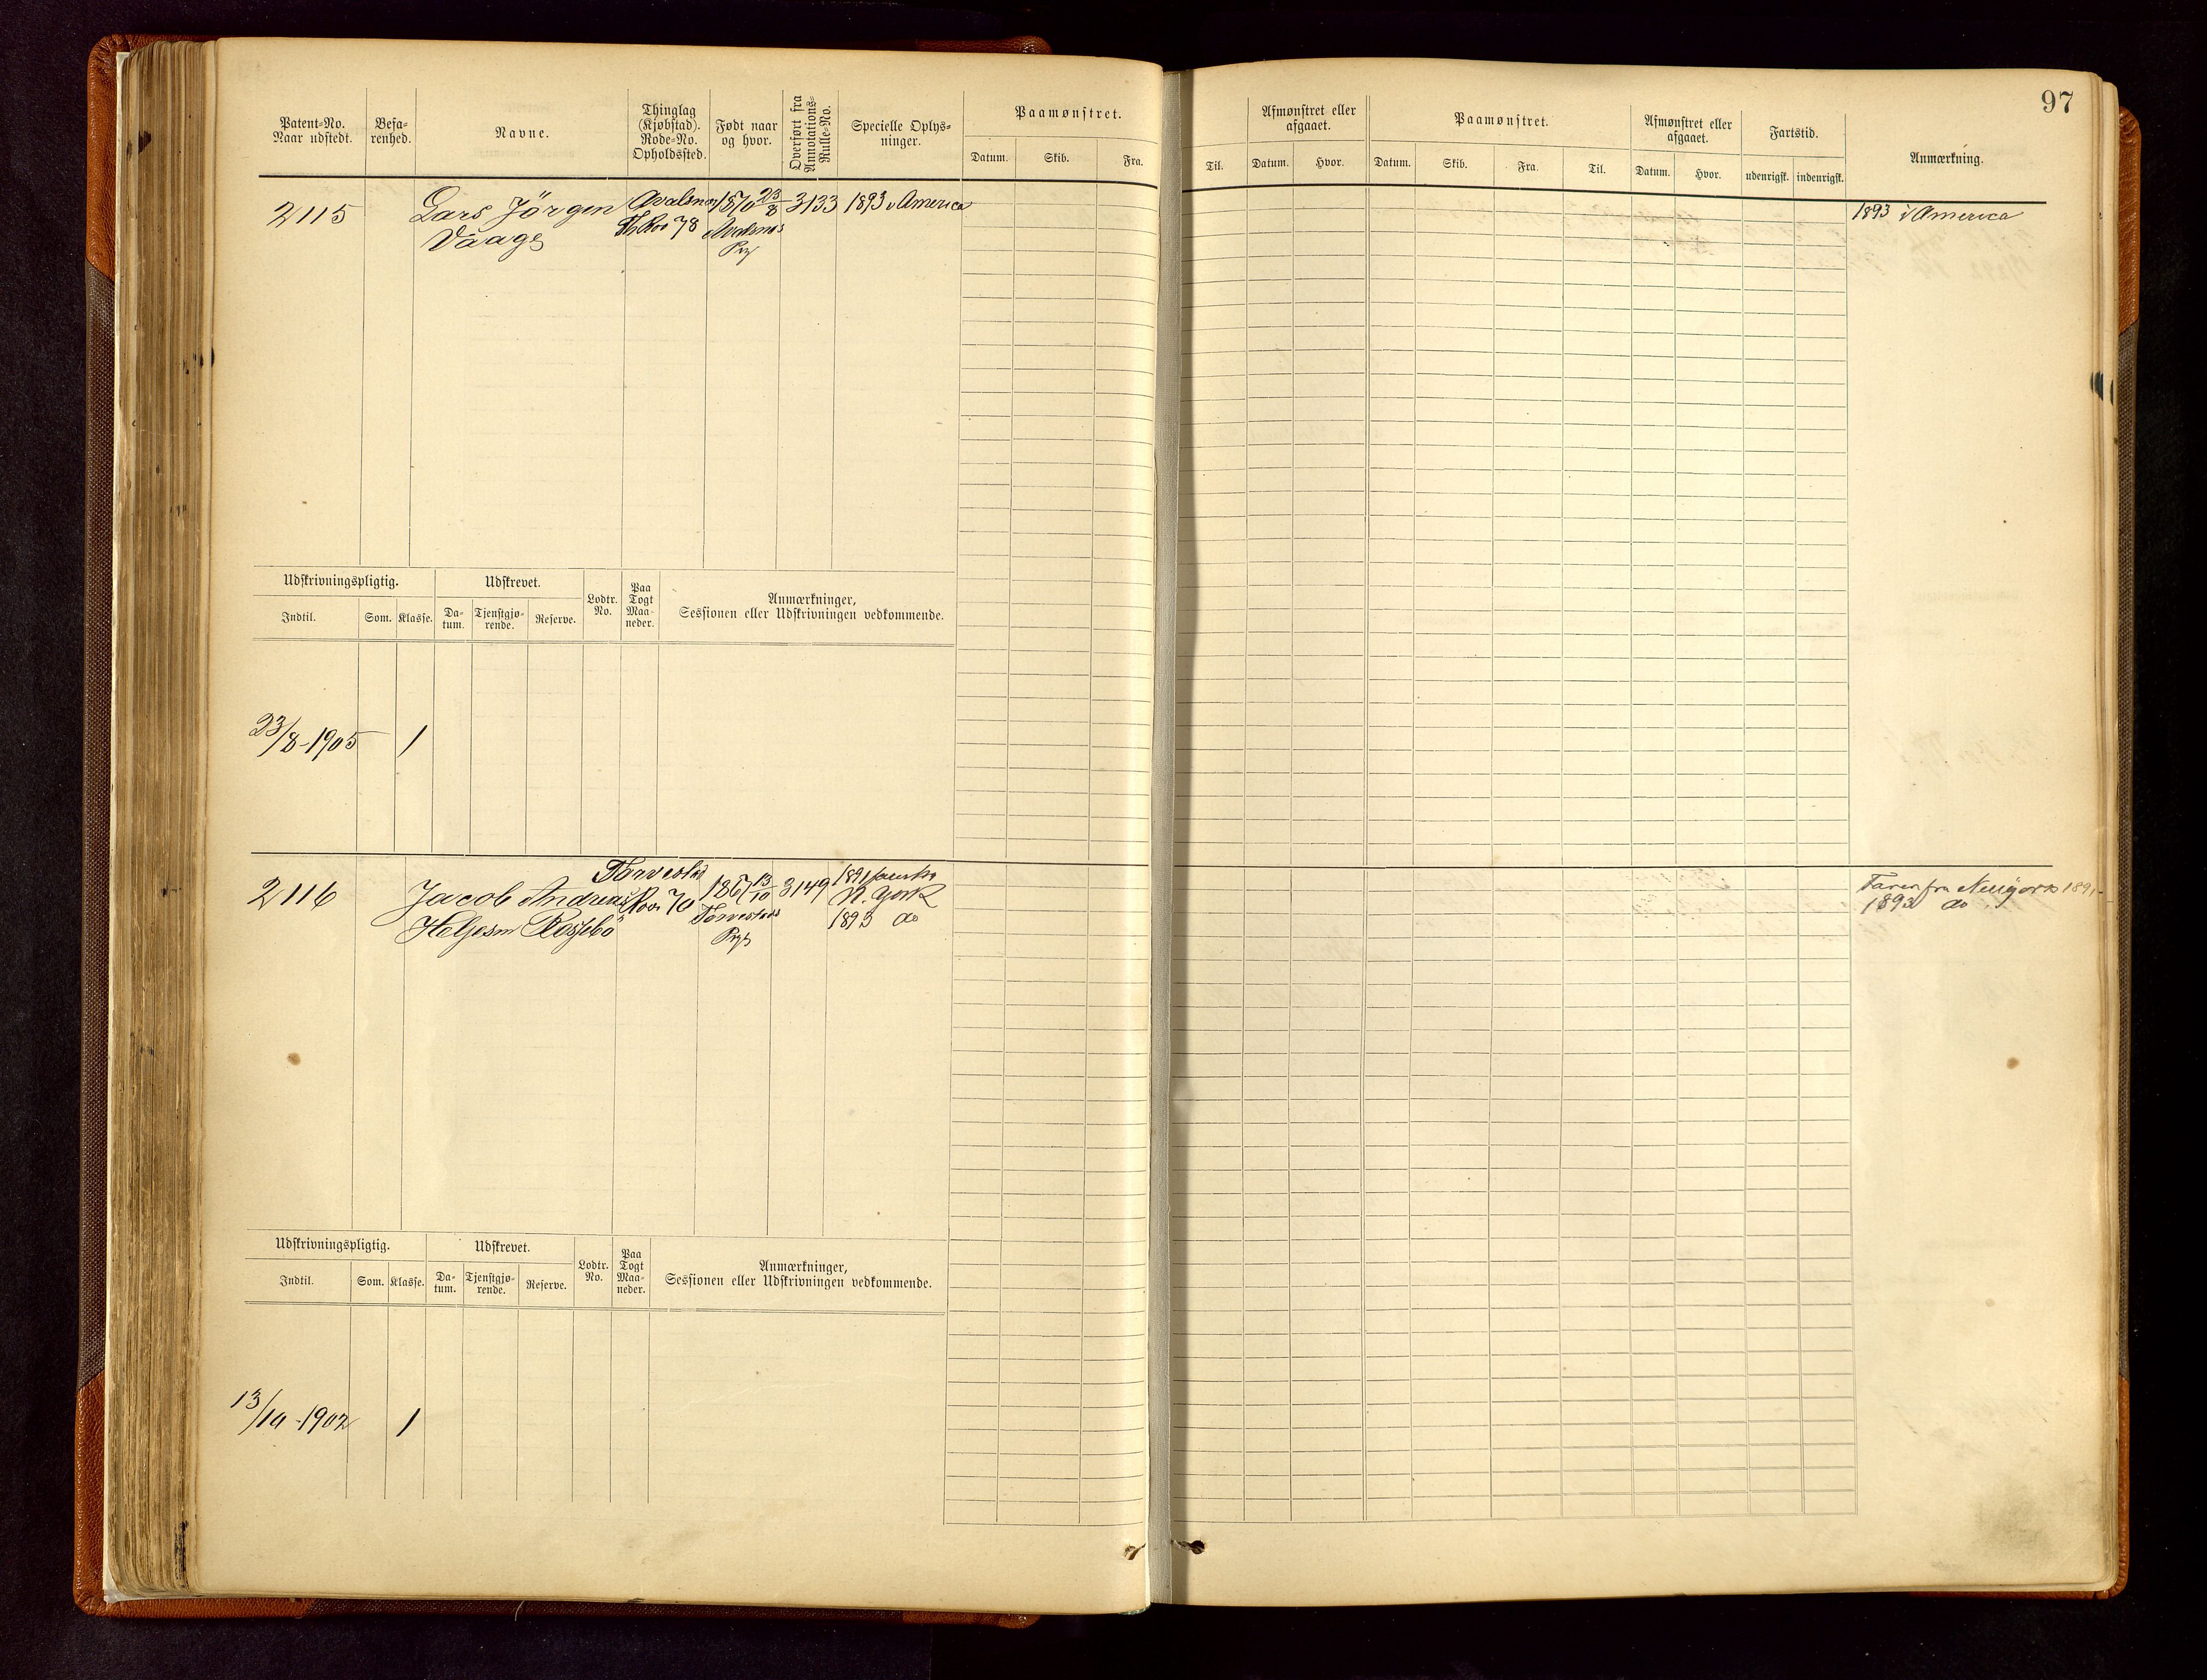 97
Patent-No.
Naar udstedt.
Befa-
renhed.
Navne.
Thinglag
(Kjøbstad).
Rode-No.
Opholdssted.
Født naar
og hvor.
Overført fra
Annotations-
Rulle-No.
Specielle Oplys-
ninger.
Paamønstret.
Datum. Skib. Fra.
Til.
Afmønstret eller
afgaaet.
Datum. Hvor.
Paamønstret.
Datum. Skib. Fra. Til.
Afmønstret eller
afgaaet.
Datum. Hvor.
Fartstid.
udenrigsk. indenrigsk.
Anmærkning.
2115 Lars Jörgen Avalsnes 1870 23/8 3133 1893 i America
Vaage 78 Avalsnes
Prgj
1893 i America
Udskrivningspligtig.
Indtil. Som. Klasse.
Udskrevet.
Da-
tum.
Tjenstgjø-
rende.
Reserve.
Lodtr.
No.
Paa
Togt
Maa-
neder.
Anmærkninger,
Sessionen eller Udskrivningen vedkommende.
23/8-1905 1
Torvestad
2116 Jacob Andreas 70 1867 13/10 3149 1891
Helgesen Torvestad N. York
Prgj 1893 do
Faren fra Newyork 1891
1893 do
Udskrivningspligtig.
Indtil. Som. Klasse.
Udskrevet.
Da-
tum.
Tjenstgjø-
rende.
Reserve.
Lodtr.
No.
Paa
Togt
Maa-
neder.
Anmærkninger,
Sessionen eller Udskrivningen vedkommende.
13/10-1902 1